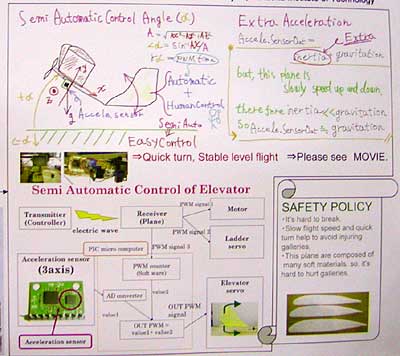 Technology
Semi Automatic Control Angle (α)
<α = sin⁻¹
PWM time
Automatic
+
Human Control
Semi Auto
x
y
z
g
+α
Accele. sensor
Easy Control
Extra Acceleration
Accele. Sensor Out =
Extra
inertia gravitation
but, this plane is
slowly speed up and down,
therefore inertia << gravitation
So Accele. Sensor Out ≒ gravitation
⇒Quick turn, Stable level flight ⇒Please see MOVIE.
Semi Automatic Control of Elevator
Transmitter
(Controller)
electric wave
Receiver
(Plane)
PWM signal 1
Motor
PWM signal 2
Ladder
servo
PIC micro computer
PWM signal 3
Acceleration sensor
(3axis)
PWM counter
(Soft ware)
AD converter
value1
value2
OUT PWM =
value1 + value2
OUT PWM
signal
Elevator
servo
Acceleration sensor
SAFETY POLICY
・It's hard to break.
・Slow flight speed and quick
turn help to avoid injuring
galleries.
・This plane are composed of
many soft materials. so, it's
hard to hurt galleries.